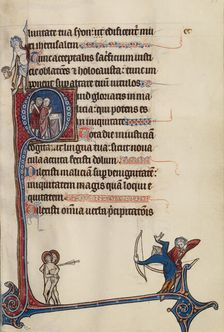 luntate tua syon: ut edificent̃ mu
ri iherusalem
Tunc acceptabis sacrificium iusti
cie oblac̃ões ⁊ holocausta: tunc in
ponent sup altare tuũ uitulos
Quid gloriaris in ma
qui potens es
in iniquitate
Tota die iniustitiam
cogitauit lingua tua: sicut no
uacula acuta fecisti dolum
Dilexisti maliciã sup benignitatẽ:
iniquitatem magis quam loqui e
quitatem
Dilexisti omnia uerba p̃cipitatiõis